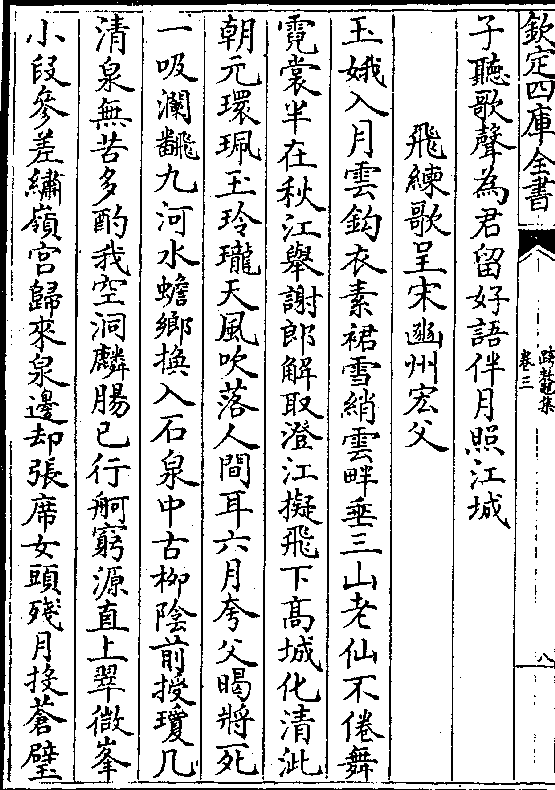 欽定四庫全書
跨鼇集
卷三
八
子聽歌聲為君留好語伴月照江城
飛練歌呈宋豳州宏父
玉娥入月雲鈎衣素裙雪綃雲畔垂三山老仙不倦舞
霓裳半在秋江舉謝郎解取澄江擬飛下髙城化清泚
朝元環珮玉玲瓏天風吹落人間耳六月夸父暍將死
一吸瀾飜九河水蟾鄉換入石泉中古柳陰前授瓊几
清泉無苦多酌我空洞麟腸已行舸窮源直上翠微峯
小段參差繡嶺宮歸來泉邊却張席女頭殘月掞蒼壁